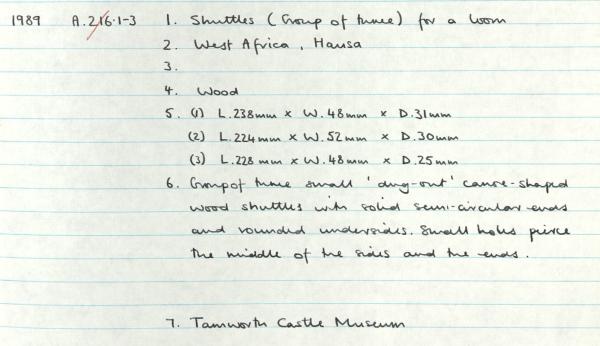 1989 A.216.1-3 1. Shuttles (Group of three) for a loom
2. West Africa, Hausa
3.
4. Wood
5. (1) L.238mm x W.48mm x D.31mm
(2) L.224mm x W.52mm x D.30mm
(3) L.228mm x W.48mm x D.25mm
6. Group of three small 'dug-out' canoe-shaped
wood shuttles with solid semi-circular ends
and rounded undersides. Small holes pierce
the middle of the sides and the ends.
7. Tamworth Castle Museum